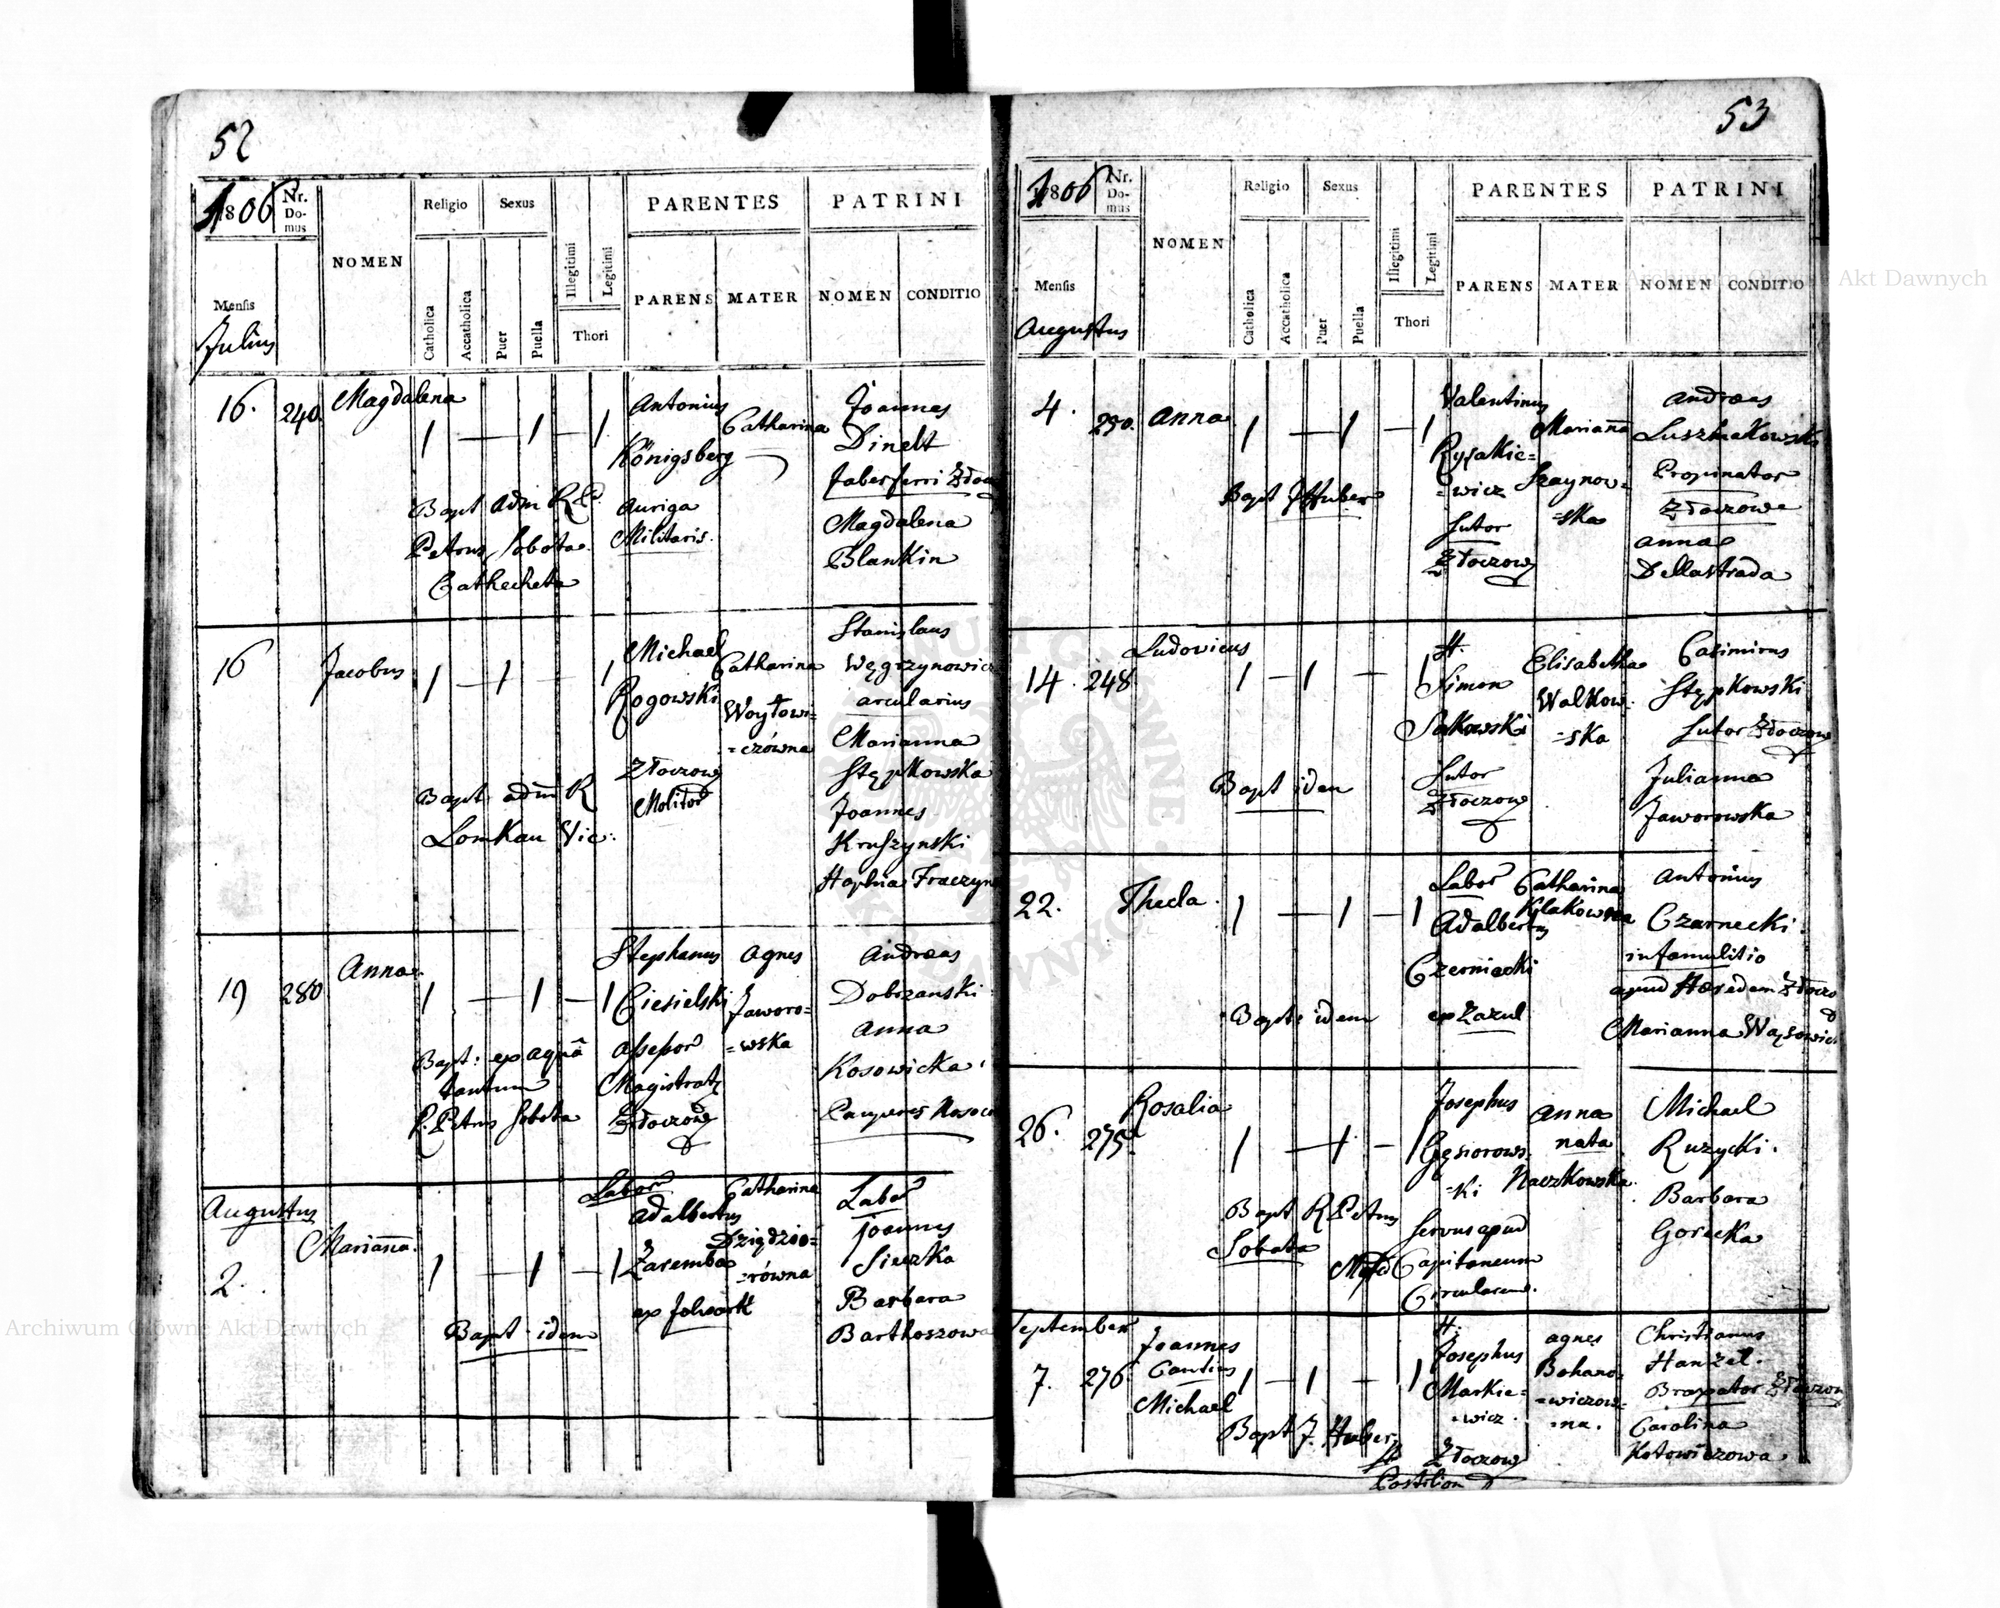 52
1806
Nr. Do-mus
NOMEN
Religio
Sexus
Illegitimi
Legitimi
PARENTES
PATRINI
Mensis
Julius
Catholica
Accatholica
Puer
Puella
Thori
PARENS
MATER
NOMEN
CONDITIO
16.
240
Magdalena
1 — 1 — 1
Antonius
Königsberg
Auriga
Militaris.
Catharina
Joannes
Dinelt
faber ferri
Magdalena
Blankin
Bapt adm R P.
Petrus Sobota
Cathecheta
16
Jacobus
1 — 1 — 1
Michael
Rogowski
Złoczow
Molitor
Catharina
Woytowi=
=czówna
Stanislaus
Węgrzynowicz
arcularius
Marianna
Stępkowska
Joannes
Kruszynski
Bapt adm R
Lomkau Vic:
19
280
Anna
1 — 1 — 1
Stephanus
Ciesielski
Assessor
Magistratg
Złoczow
Agnes
Jaworo=
=wska
Andreas
Dobrzanski
Anna
Kosowicka
Bapt: ex aquâ
tantum
P. Petrus Sobota
Augustus
2.
Mariana.
1 — 1 — 1
Labor
Adalbertus
Zaremba
ex folwark
Catharina
=równa
Labor
Joannes
Sieczka
Barbara
Bartkoszowa
Bapt idem
53
1806
Nr. Do-mus
NOMEN
Religio
Sexus
Illegitimi
Legitimi
PARENTES
PATRINI
Mensis
Augustus
Catholica
Accatholica
Puer
Puella
Thori
PARENS
MATER
NOMEN
CONDITIO
4.
290.
Anna
1 — 1 — 1
Valentinus
=wicz
Sutor
Złoczow
Mariana
Szaynow=
=ska
Andreas
Propinator
Złoczow
Anna
Dellastrada
Bapt J Huber
14.
248
Ludovicus
1 — 1 — 1
H.
Simon
Sakowski
Sutor
Złoczow
Elisabetha
Walkow
=ska
Casimirus
Stępkowski
Sutor Złoczow
Julianna
Jaworowska
Bapt idem
22.
Thecla.
1 — 1 — 1
Labor
Adalbertus
Czerniecki
ex Zazul
Catharina
Klakowska
Antonius
Czarnecki
in famulitio
Marianna
Bapt: idem
26.
275
Rosalia
1 — 1 — 1
Josephus
Gąsiorows
=ki
servus apud
Capitaneum
Circularem.
Anna
nata
Naczkowska
Michael
Ruzycki.
Barbara
Gorecka
Bapt R Petrus
Sobota
September
7.
276
Joannes
Cantius
Michael
1 — 1 — 1
H.
Josephus
Markie=
=wicz.
Złoczow
Postilion
Agnes
Bohano=
=wiczow=
=na.
Christianus
Hanzel.
Braxator Złoczow
Carolina
Kotowiczowa
Bapt J. Huber
Archiwum Główne Akt Dawnych
Archiwum Główne Akt Dawnych